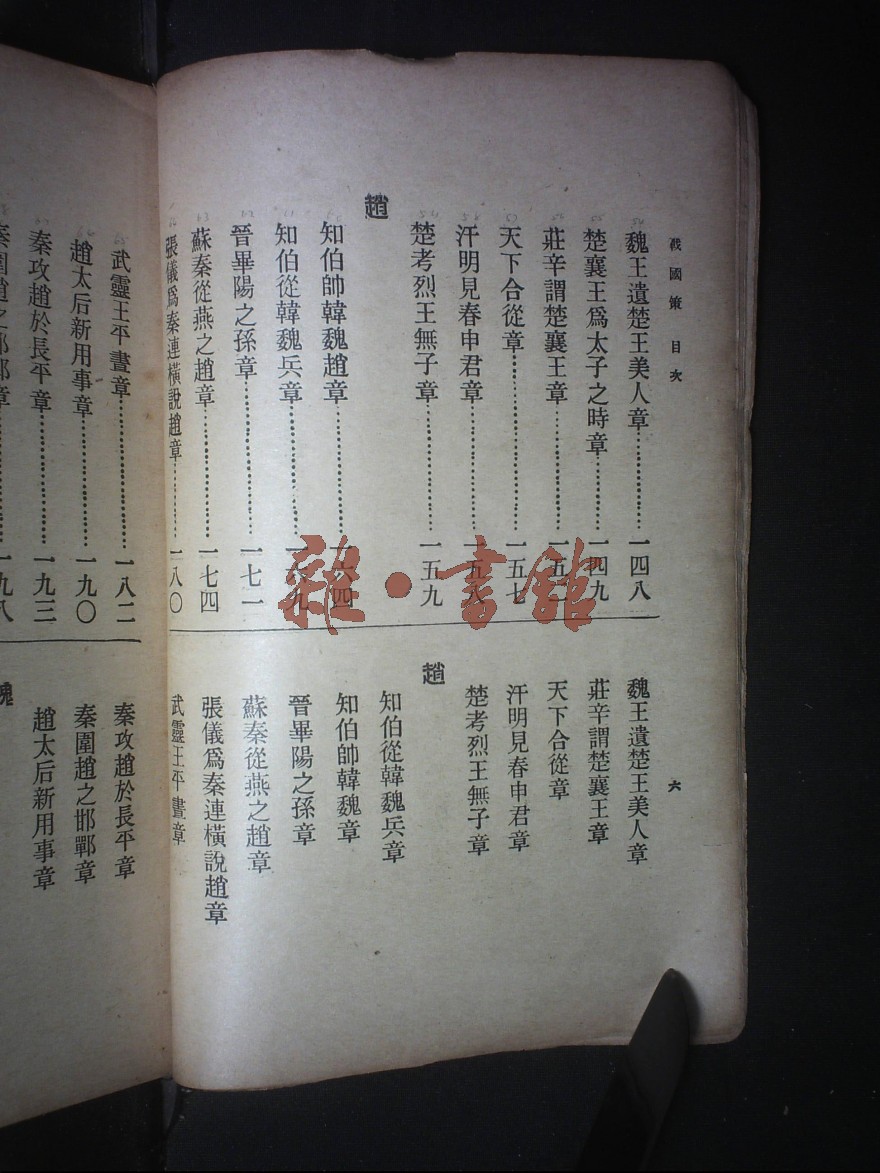 戰國策 目次
六
魏王遺楚王美人章…………一四八
楚襄王爲太子之時章………一四九
莊辛謂楚襄王章……………一五
天下合從章…………………一五七
汗明見春申君章……………一五八
楚考烈王無子章……………一五九
趙
知伯帥韓魏趙章……………一六四
知伯從韓魏兵章……………一六九
晉畢陽之孫章………………一七一
蘇秦從燕之趙章……………一七四
張儀爲秦連橫說趙章………一八〇
魏王遺楚王美人章
莊辛謂楚襄王章
天下合從章
汗明見春申君章
楚考烈王無子章
趙
知伯從韓魏兵章
知伯帥韓魏章
晉畢陽之孫章
蘇秦從燕之趙章
張儀爲秦連橫說趙章
武靈王平晝章
武靈王平晝章………………一八二
趙太后新用事章……………一九〇
秦攻趙於長平章……………一九三
秦圍趙之邯鄲章……………一九八
秦攻趙於長平章
秦圍趙之邯鄲章
趙太后新用事章
雜·書館